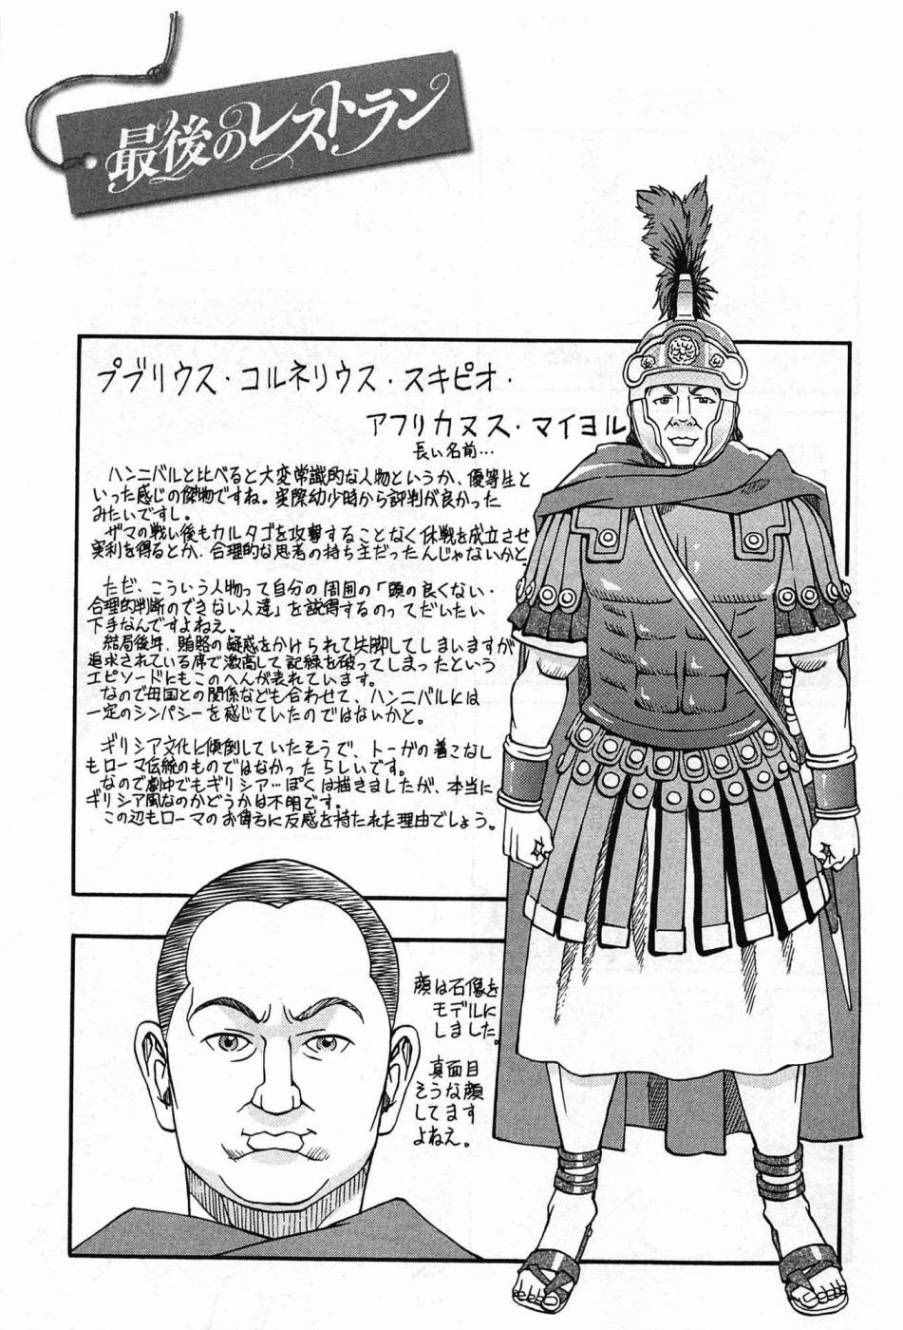 最後のレストラン
プブリウス・コルネリウス・スキピオ・
アフリカヌス・マイヨル
長い名前…
ハンニバルと比べると大変常識的な人物というか、優等生と
いった感じの傑物ですね。実際幼少時から評判が良かった
みたいですし。
ザマの戦い後もカルタゴを攻撃することなく休戦を成立させ
実利を得るとか、合理的な思考の持ち主だったんじゃないかと。
ただ、こういう人物って自分の周囲の「頭の良くない・
合理的判断のできない人達」を説得するのってだいたい
下手なんですよねえ。
結局後年、賄賂の疑惑をかけられて失脚してしまいますが
追求されている席で激高して記録を破ってしまったという
エピソードにもこのへんが表れています。
なので母国との関係なども合わせて、ハンニバルには
一定のシンパシーを感じていたのではないかと。
ギリシア文化に傾倒していたそうで、トーガの着こなし
もローマ伝統のものではなかったらしいです。
なので劇中でもギリシア…ぽくは描きましたが、本当に
ギリシア風なのかどうかは不明です。
この辺もローマのお偉方に反感を持たれた理由でしょう。
顔は石像を
モデルに
しました。
真面目
そうな顔
してます
よねえ。